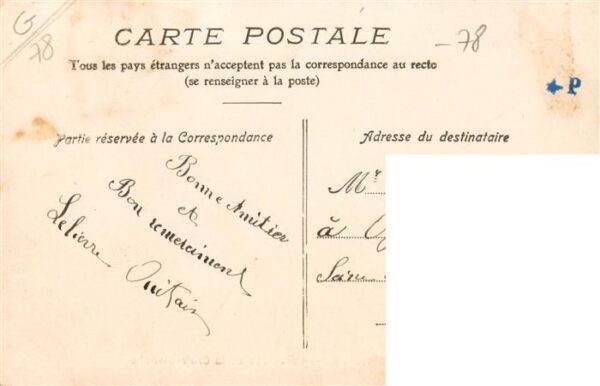 G
78
CARTE POSTALE
- 78
Tous les pays étrangers n'acceptent pas la correspondance au recto
(se renseigner à la poste)
P
Partie réservée à la Correspondance
Adresse du destinataire
Bonne Amitier
et
Bon remerciment
Lelierre
Mr
à
Seine